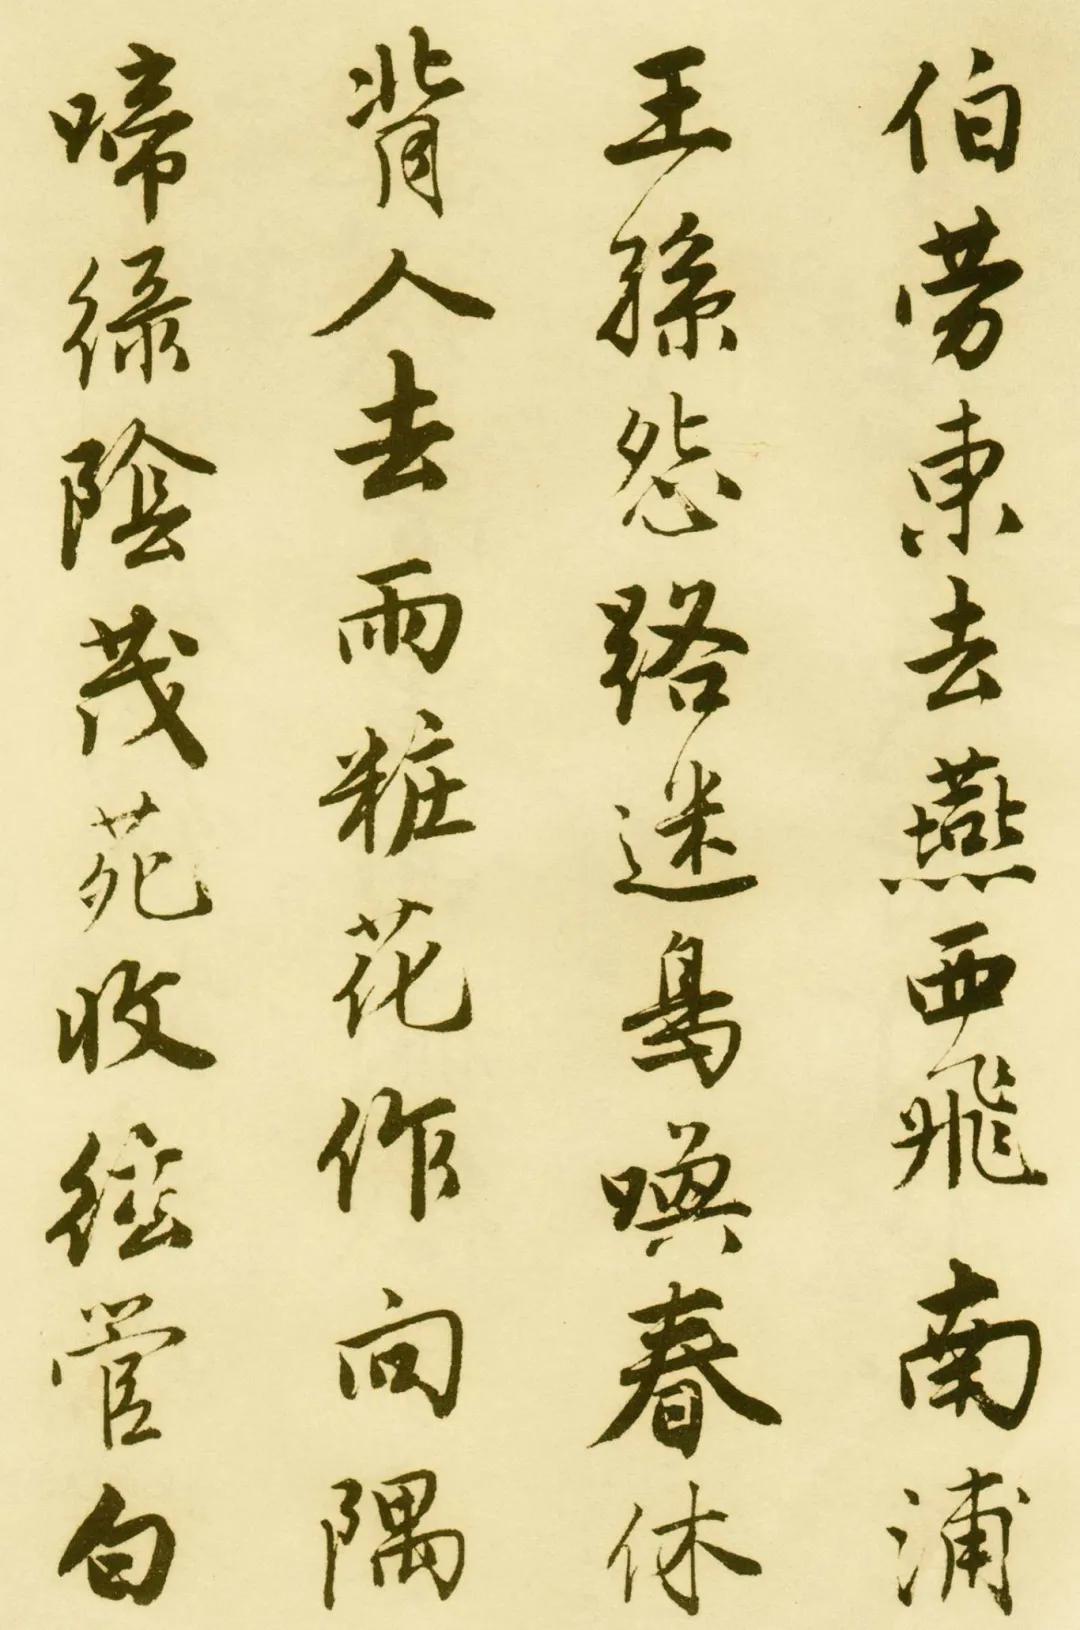 伯勞東去燕西飛南浦
王孫怨路迷鳥喚春休
背人去雨粧花作向隅
啼緑陰茂苑收絃管白